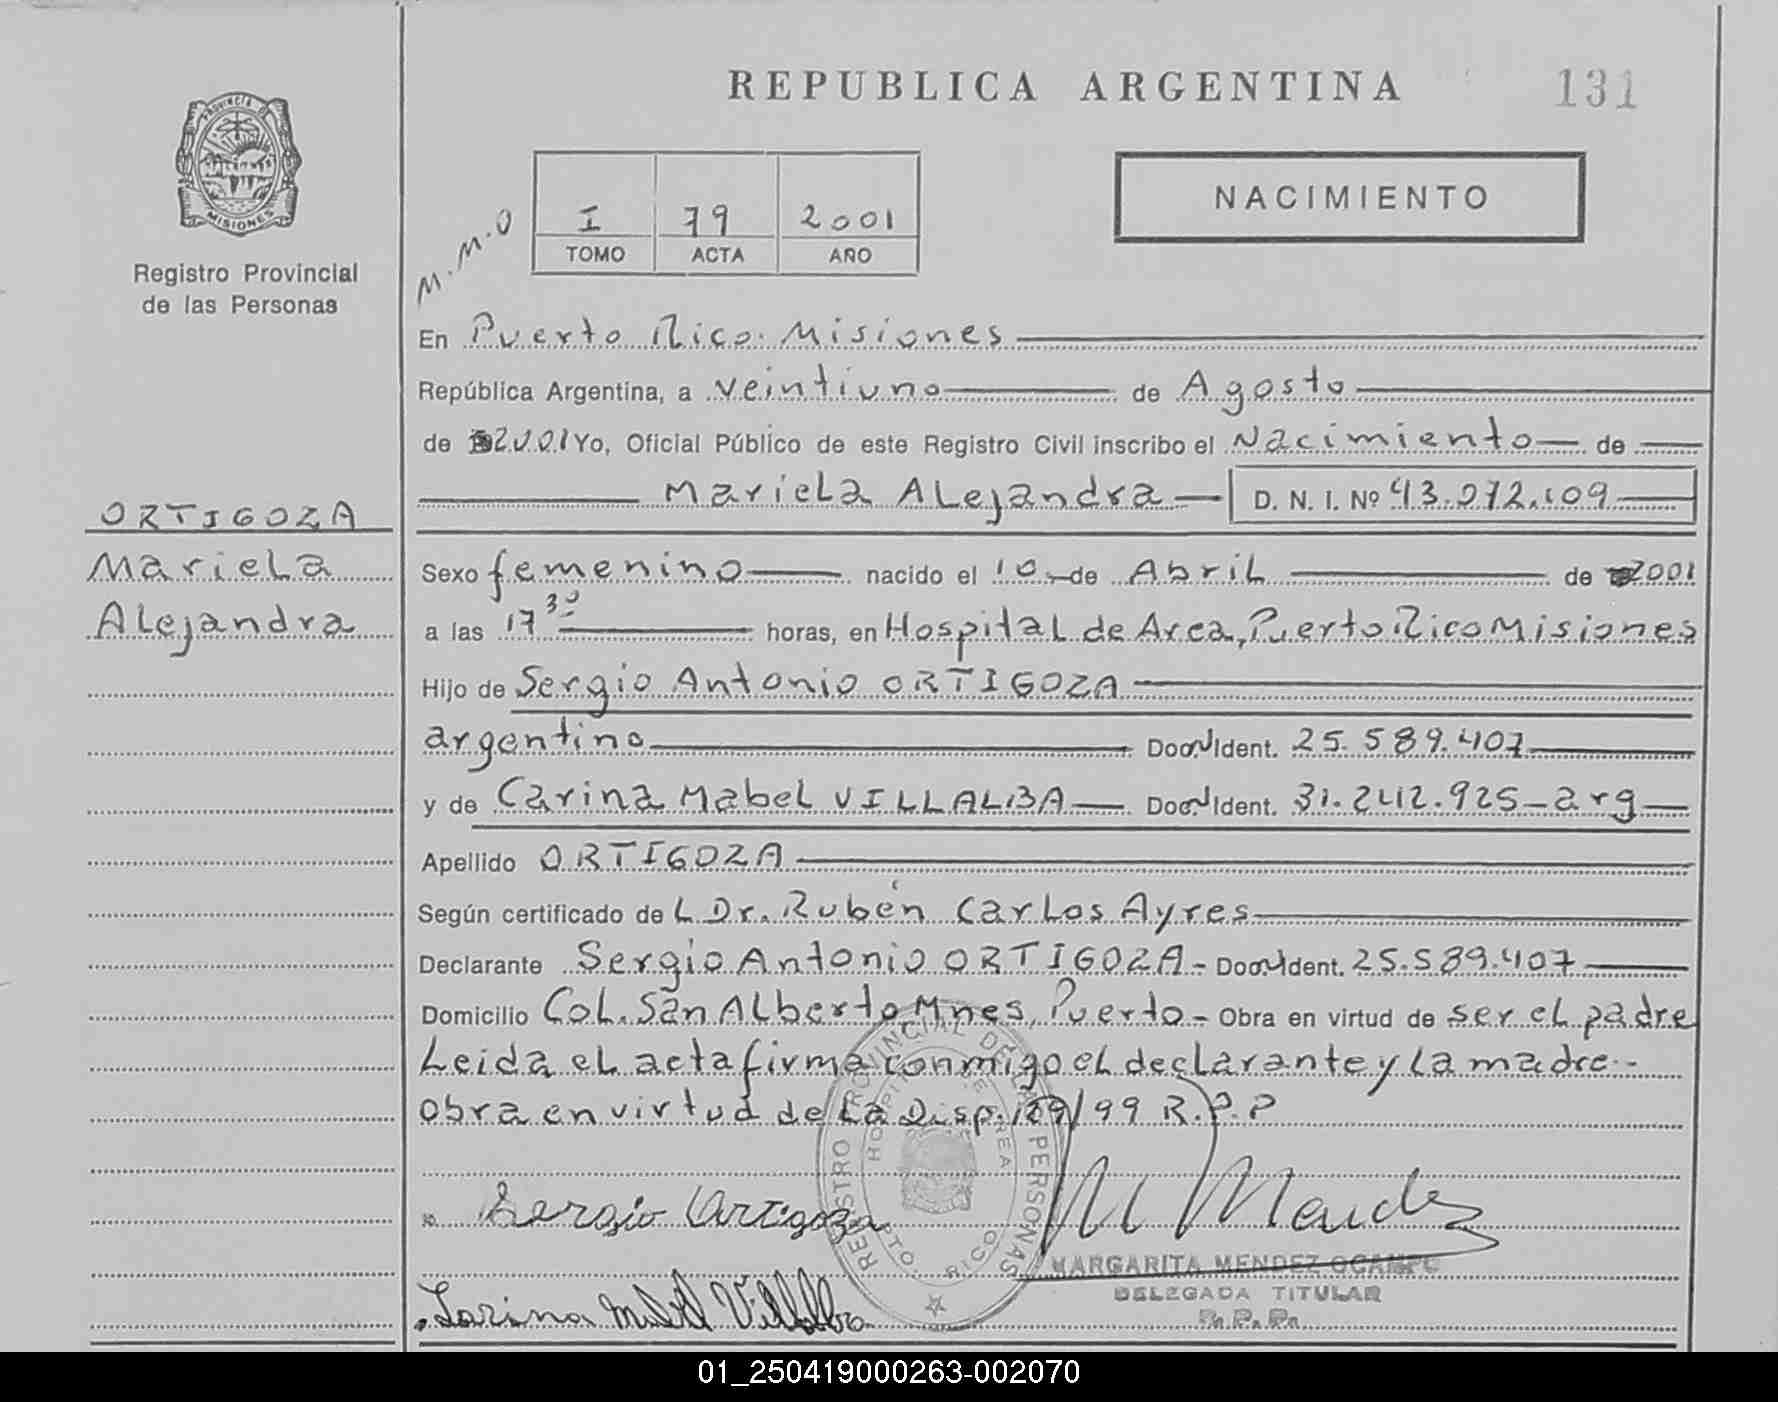 REPUBLICA ARGENTINA
131
PROVINCIA D
MISIONES
Registro Provincial
de las Personas
M.M.O
I 79 2001
TOMO ACTA AÑO
NACIMIENTO
En Puerto Rico. Misiones
República Argentina, a veintiuno de Agosto
de 2001 Yo, Oficial Público de este Registro Civil inscribo el Nacimiento de
Mariela Alejandra D. N. I. Nº 43.072.109
ORTIGOZA
Mariela
Alejandra
Sexo femenino nacido el 10 de Abril de 2001
a las 17 30 horas, en Hospital de Area, Puerto Rico Misiones
Hijo de Sergio Antonio ORTIGOZA
argentino Ident. 25.589.407
y de Carina Mabel VILLALBA Ident. 31.242.925 - arg
Apellido ORTIGOZA
Según certificado de L Dr. Rubén Carlos Ayres
Declarante Sergio Antonio ORTIGOZA - Ident. 25.589.407
Domicilio Col. San Alberto Mnes, Puerto - Obra en virtud de ser el padre
Leida el acta firma conmigo el declarante y la madre.-
Obra en virtud de la Disp. 159/99 R.P.P
REGISTRO PROVINCIAL DE LAS PERSONAS
HOSPITAL DE AREA
PTO. RICO
Sergio Ortigoza
M Mendez
MARGARITA MENDEZ OCAMPO
DELEGADA TITULAR
R. P. P.
Carina Mabel Villalba
01_250419000263-002070